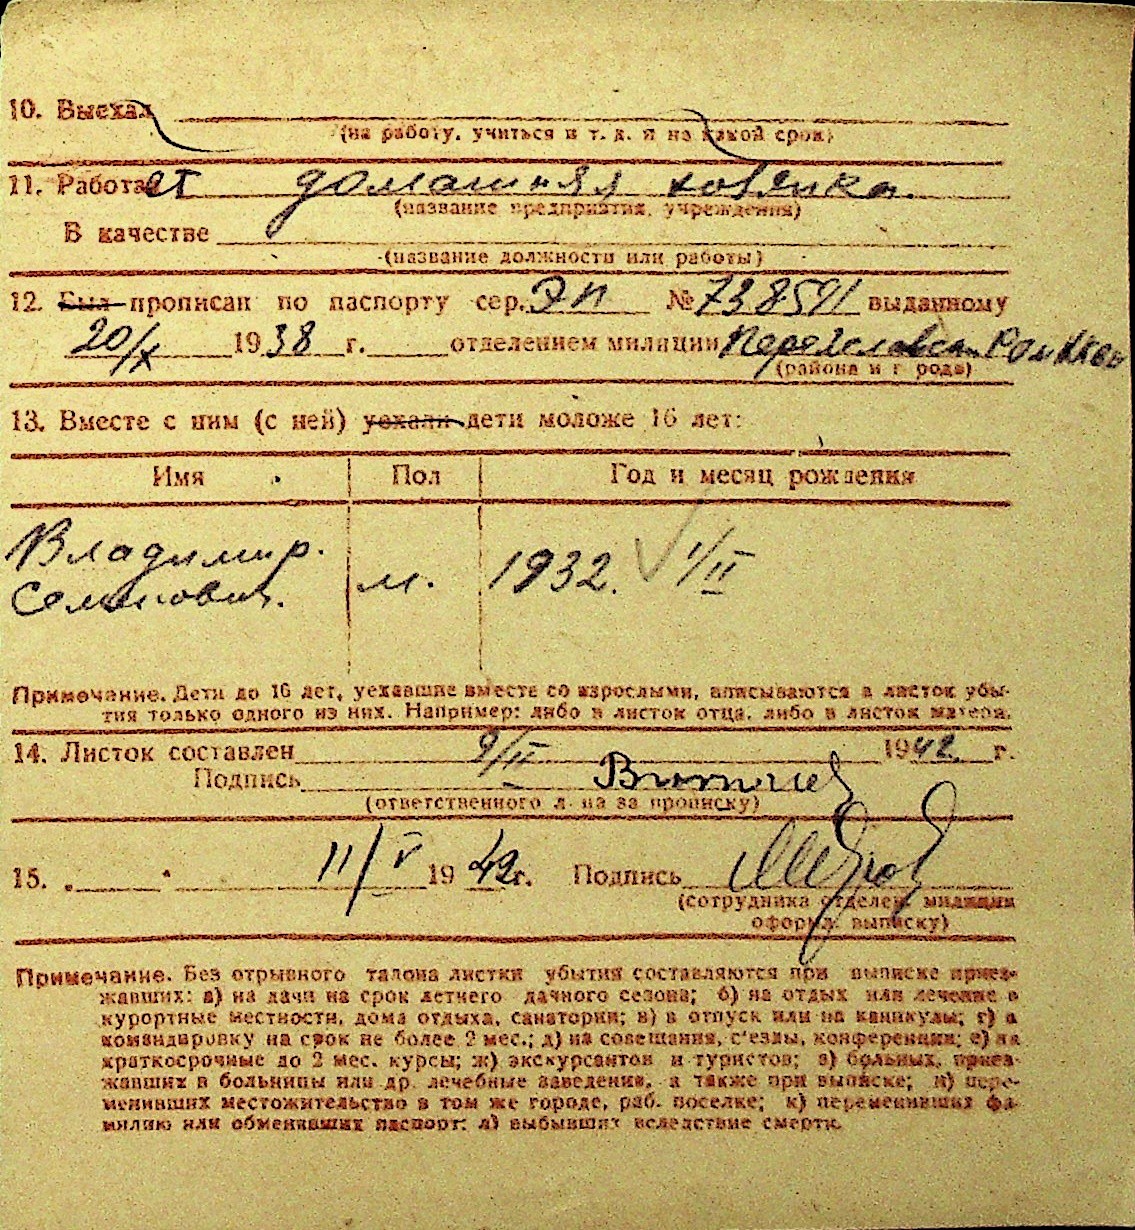 10. Выехал
(на работу, учиться и т. д. и на какой срок)
11. Работает домашняя хозяйка.
(название предприятия, учреждения)
В качестве
(название должности или работы)
12. Был прописан по паспорту сер. ЭП № 738591 выданному
20/X 1938 г. отделением милиции
(района и города)
13. Вместе с ним (с ней) уехали дети моложе 16 лет:
Имя Пол Год и месяц рождения
Владимир.
Семенович. м. 1932. 1/II
Примечание. Дети до 16 лет, уехавшие вместе со взрослыми, вписываются в листок убы-
тия только одного из них. Например: либо в листок отца, либо в листок матери.
14. Листок составлен 9/II 1942 г.
Подпись
(ответственного л-ца за прописку)
15. 11/V 1942 г. Подпись
(сотрудника отделен. милиции
оформ. выписку)
Примечание. Без отрывного талона листки убытия составляются при выписке приез-
жавших: а) на дачи на срок летнего дачного сезона; б) на отдых или лечение в
курортные местности, дома отдыха, санатории; в) в отпуск или на каникулы; г) в
командировку на срок не более 2 мес.; д) на совещания, с'езды, конференции; е) на
краткосрочные до 2 мес. курсы; ж) экскурсантов и туристов; з) больных, приез-
жавших в больницы или др. лечебные заведения, а также при выписке; и) пере-
менивших местожительство в том же городе, раб. поселке; к) переменивших фа-
милию или обменявших паспорт; л) выбывших вследствие смерти.